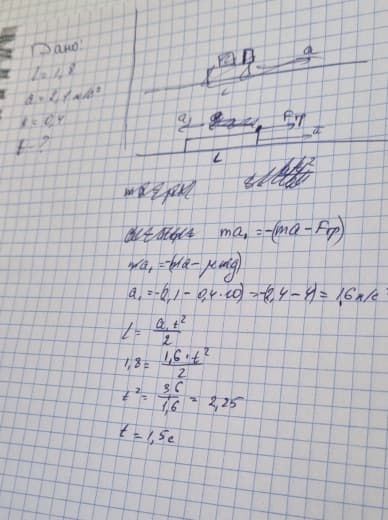 Дано:
l = 1,8
a = 2,4 м/с²
μ = 0,4
t - ?
a
L
a
Fтр
a
L
ma₁ = -(ma - Fтр)
ma₁ = -(ma - μmg)
a₁ = -(2,1 - 0,4·10) = -(2,4 - 4) = 1,6 м/с²
l = a₁t²/2
1,8 = 1,6·t²/2
t² = 3,6/1,6 = 2,25
t = 1,5c